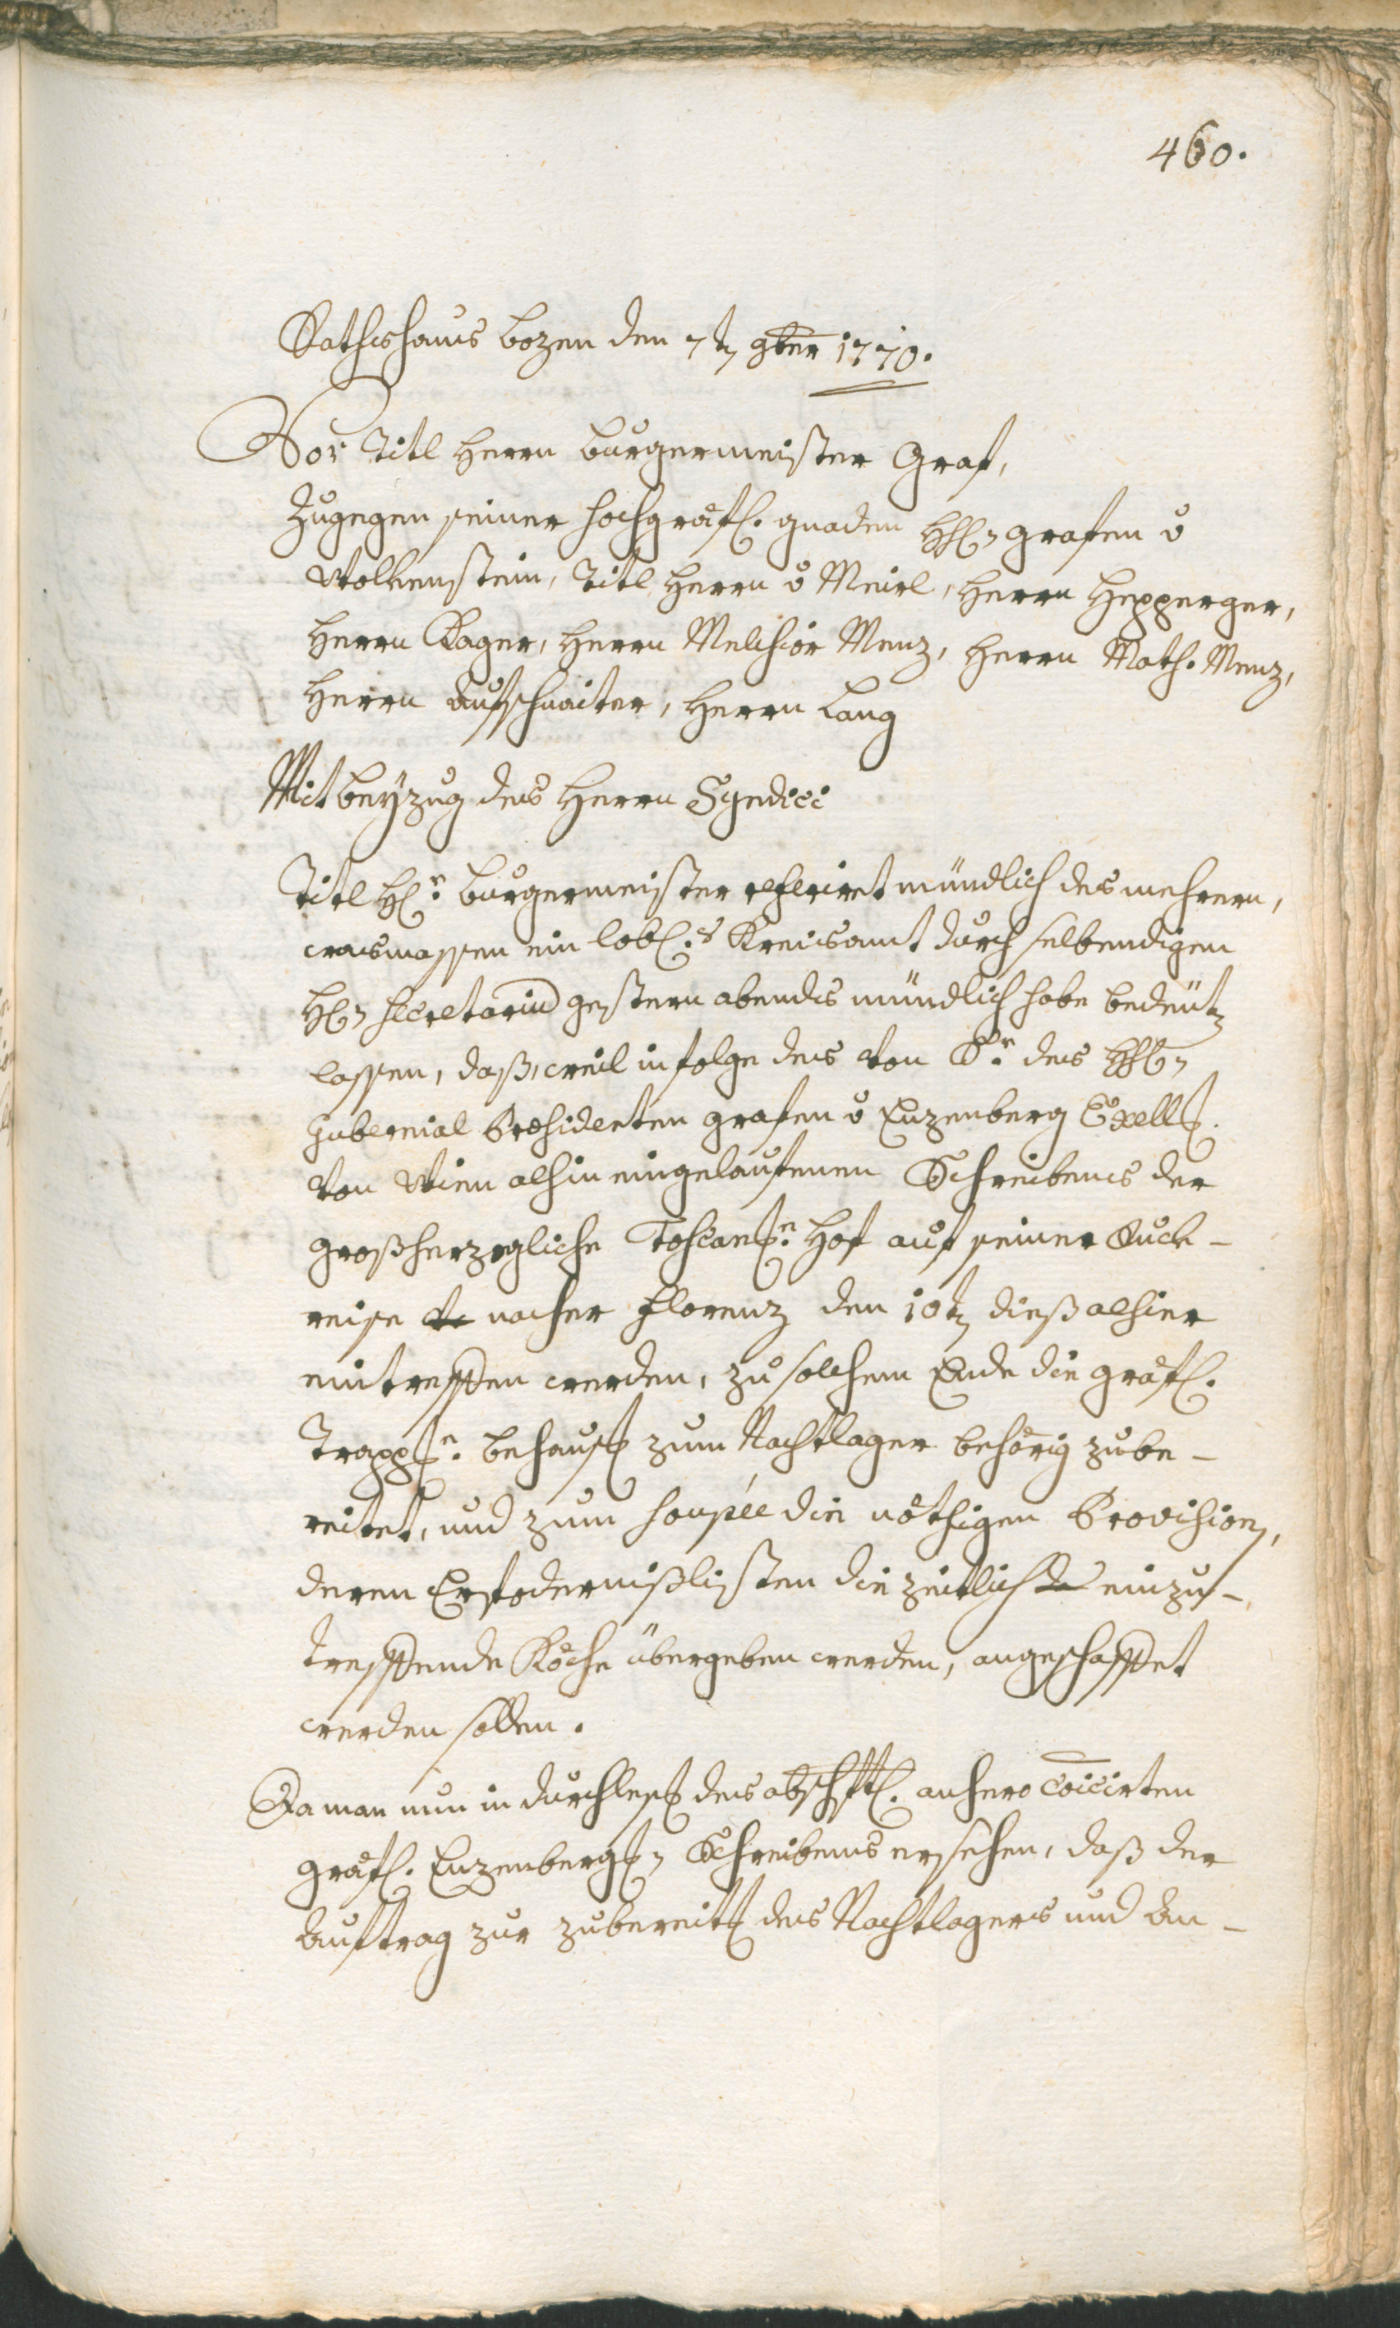 460.
Rathshaus Bozen den 7t 9ber 1770.
Vor Titl Herrn Burgermeister Graf,
Zugegen seiner hochgräfl. gnaden HH grafen v
Wolkenstein, Titl Herrn v Meirl, Herrn Hepperger,
Herrn Rager, Herrn Melchior Menz, Herrn Math. Menz,
Herrn Aufschnaiter, Herrn Lang
Mit beyzug des Herrn Syndici
Titl Hr: Burgermeister referiret mündlich des mehrern,
wasmassen ein lobl.s Kreisamt durch selbendigen
Hn Secretariu gestern abends mündlich habe bedeutn
lassen, daß, weil in folge des von Sr: des HH
Gubernial Præsidenten grafen v Enzenberg Exell.
von Wien alhin eingelaufenen Schreibens der
großherzogliche Toscanr: Hof auf seiner Ruck-
reise nacher Florenz den 10t dieß alhier
eintreffen werden, zu solchem Ende die gräfl.
Trappr: behausg zum Nachtlager behörig zube-
reitet, und zum soupée die nöthigen Provision,
deren Erfodernißlisten die zeitlich einzu-
treffende Köche übergeben werden, angeschaffet
werden sollen.
Da man nun in durchlesg des abschftl. anhero coicirten
gräfl. Enzenbergn Schreibens ersehen, daß der
Auftrag zur zubereitg des Nachtlagers und An-